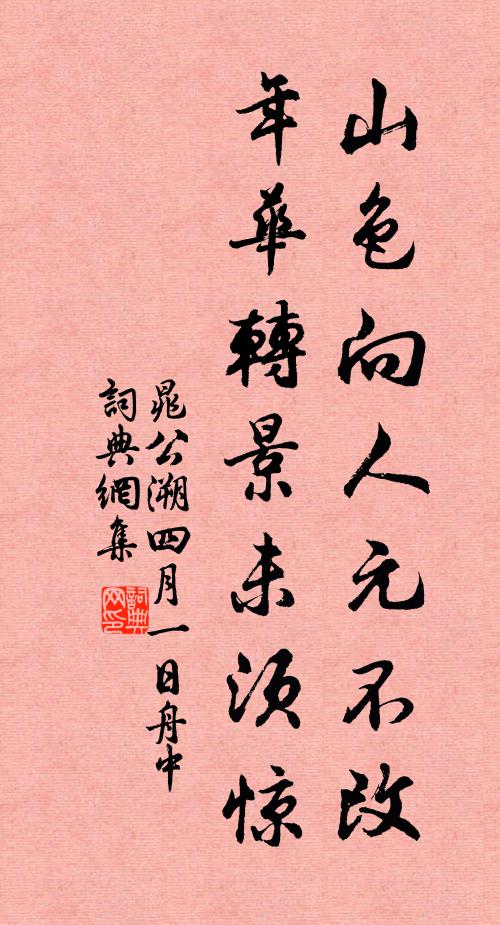 山色向人元不改
年華轉景未須惊
晁公溯四月一日舟中
詞典網集
詞典网印